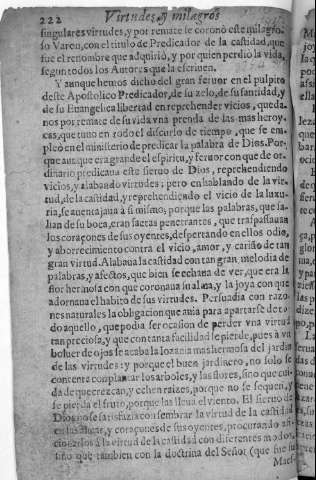 222 Virtudes, y milagros
singulares virtudes, y por remate se coronò este milagro-
so Varon, con el titulo de Predicador de la castidad, que
fue el renombre que adquiriò, y por quien perdiò la vida,
segun todos los Autores que la escriuen.
Y aunque hemos dicho del gran feruor en el pulpito
deste Apostolico Predicador, de su zelo, de su santidad, y
de su Euangelica libertad en reprehender vicios, queda-
nos por remate de su vida vna prenda de las mas heroy-
cas, que tuuo en todo el discurso de tiempo, que se em-
pleò en el ministerio de predicar la palabra de Dios. Por-
que aunque era grande el espiritu, y feruor con que de or-
dinario predicaua este sieruo de Dios, reprehendiendo
vicios, y alabando virtudes; pero en hablando de la vir-
tud, de la castidad, y reprehendiendo el vicio de la luxu-
ria, se auentajaua à si mismo, porque las palabras, que sa-
lian de su boca, eran saetas penetrantes, que traspassauan
los coraçones de sus oyentes, despertando en ellos odio,
y aborrecimiento contra el vicio, amor, y cariño de tan
gran virtud. Alabaua la castidad con tan gran melodia de
palabras, y afectos, que bien se echaua de ver, que era la
flor hermosa con que coronaua su alma, y la joya con que
adornaua el habito de sus virtudes. Persuadia con razo-
nes naturales la obligacion que auia para apartarse de to-
do aquello, que podia ser ocasion de perder vna virtud
tan preciosa, y que con tanta facilidad se pierde, pues à vn
boluer de ojos se acaba la lozania mas hermosa del jardin
de las virtudes: y porque el buen jardinero, no solo se
contenta con plantar los arboles, y las flores, sino que cui-
da de que crezcan, y echen raizes, porque no se sequen, y
se pierda el fruto, porque las lleua el viento. El sieruo de
Dios no se satisfazia con sembrar la virtud de la castidad
en las almas, y coraçones de sus oyentes, procurando afi-
cionarlos à la virtud de la castidad con diferentes modos,
sino que tambien con la doctrina del Señor (que fue su
Maes-